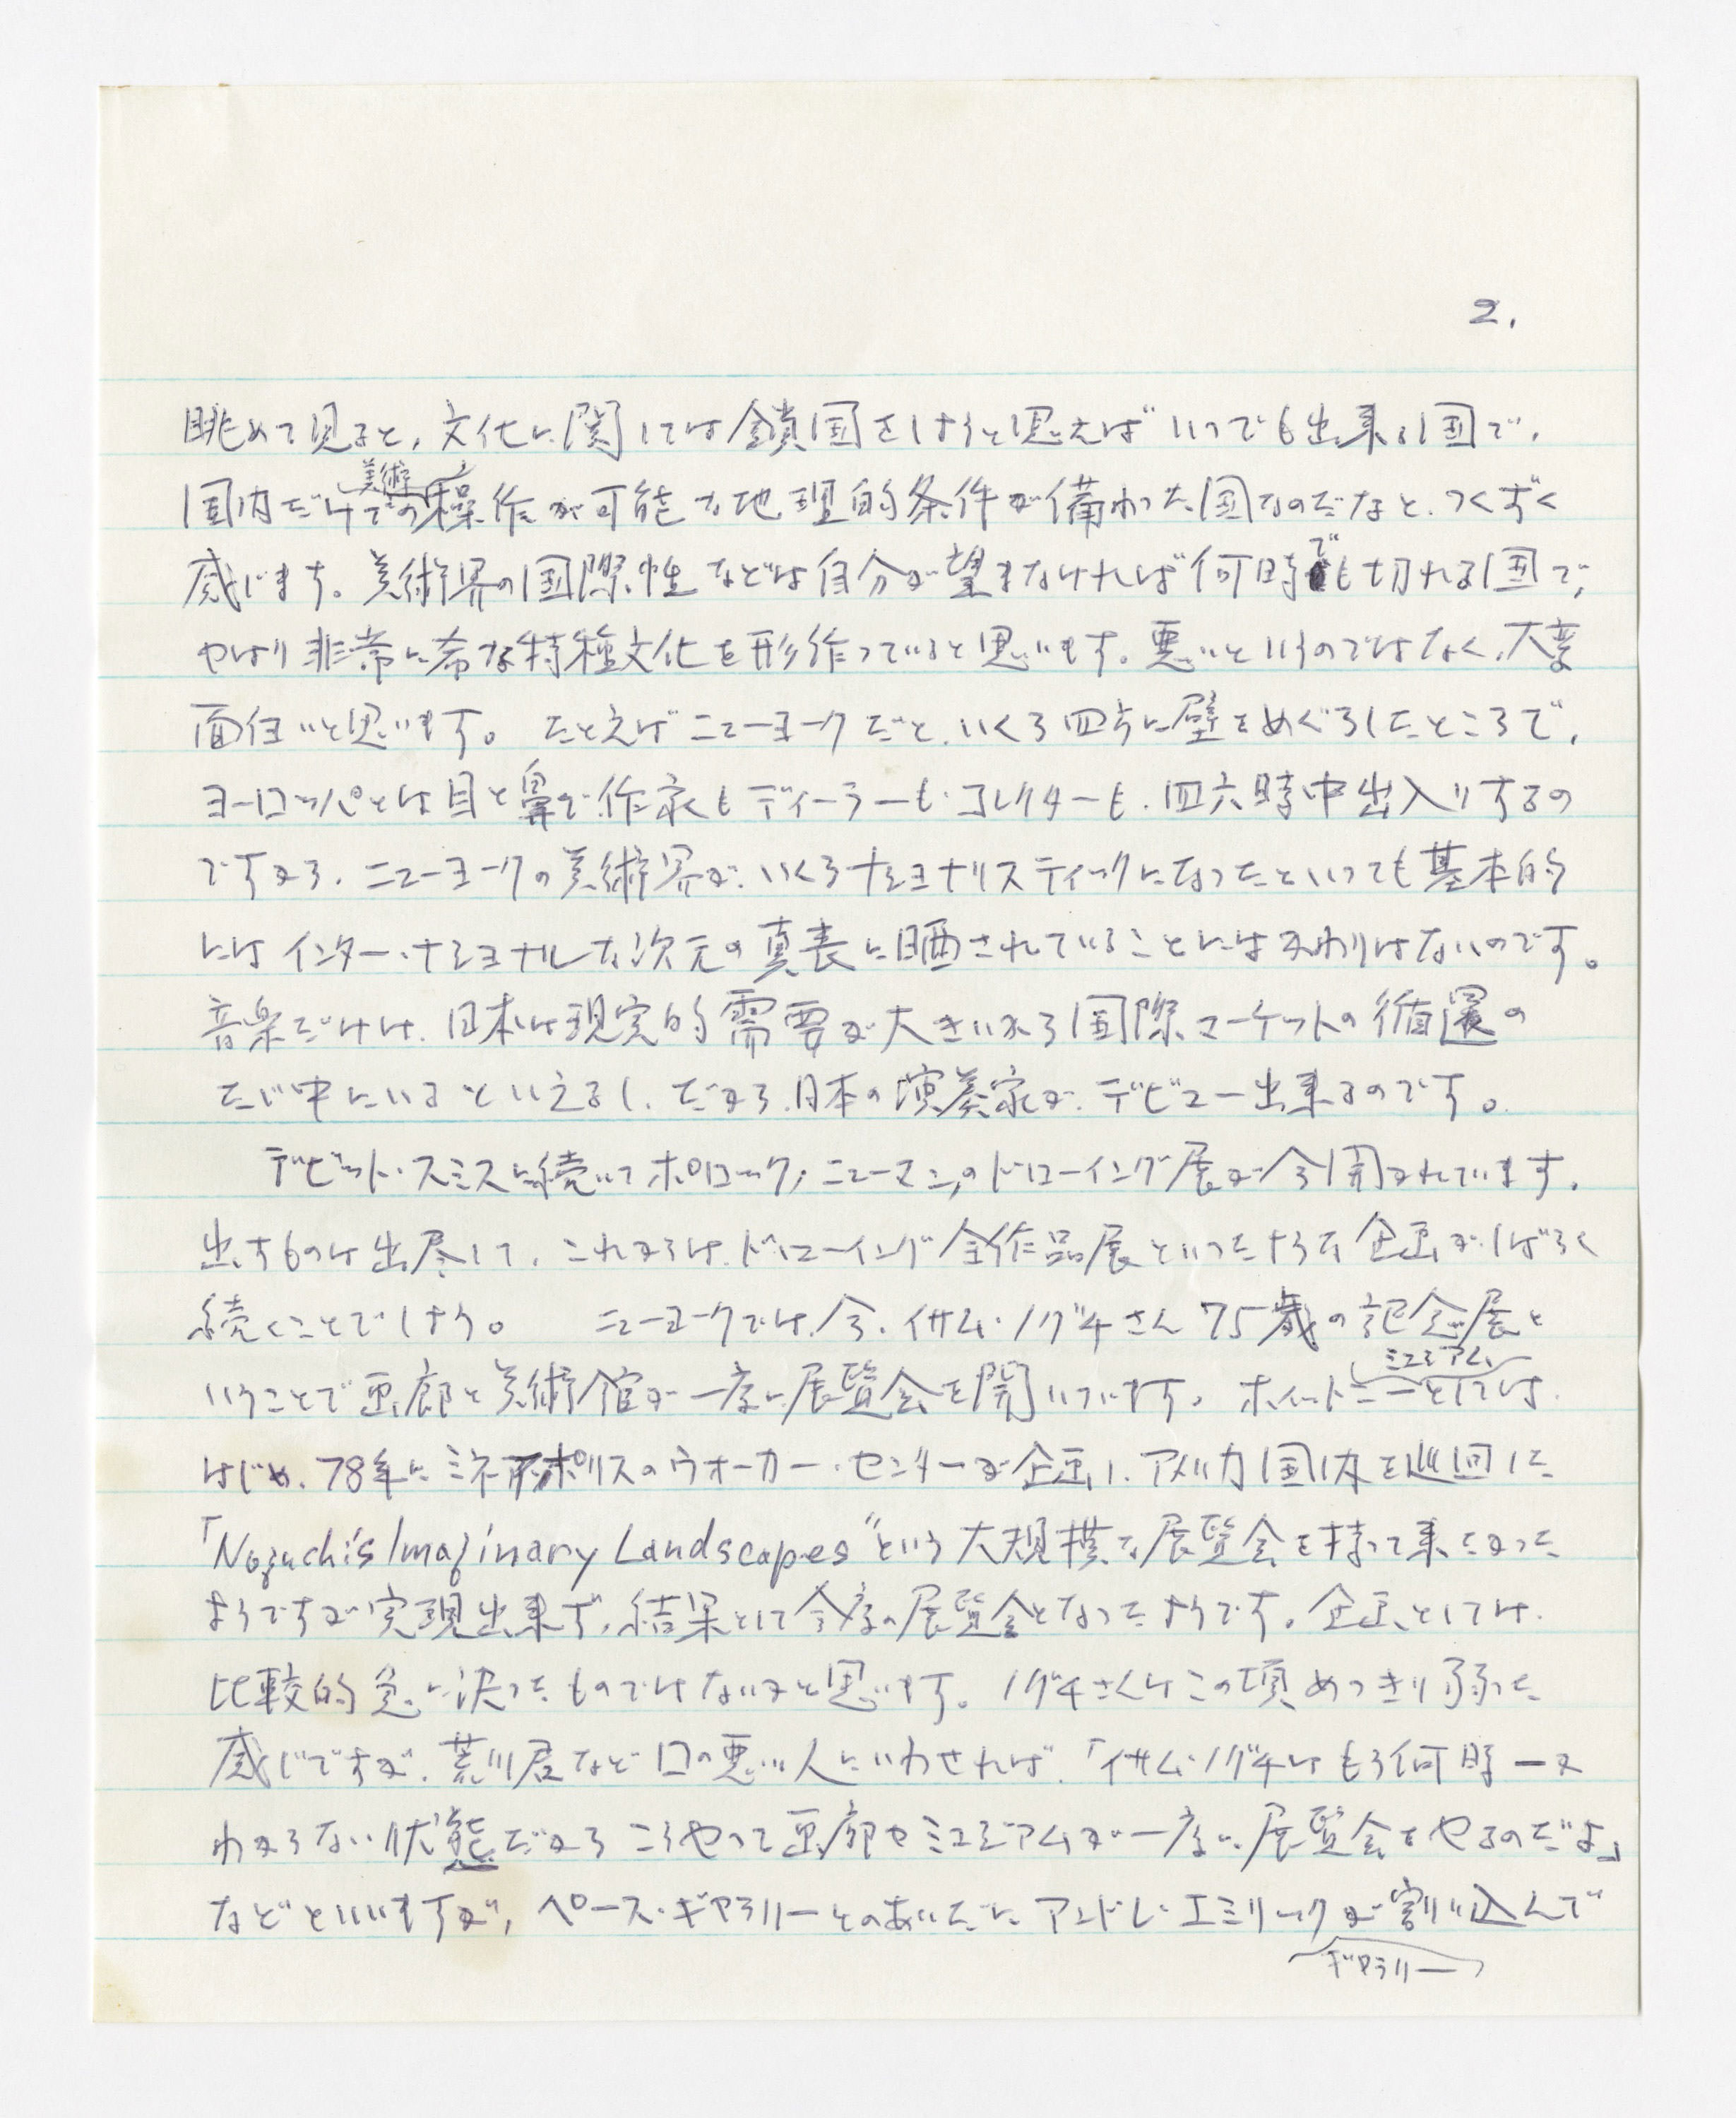 2.
眺めて見ると、文化に関しては鎖国をしようと思えばいつでも出来る国で、
国内だけでの美術の操作が可能な地理的条件が備わった国なのだなと、つくずく
感じます。美術界の国際性などは自分が望まなければ何時でも切れる国で、
やはり非常に希な特種文化を形作っていると思います。悪いというのではなく、大変
面白いと思います。たとえばニューヨークだと、いくら四方に壁をめぐらしたところで、
ヨーロッパとは目と鼻で作家もディーラーも、コレクターも、四六時中出入りするの
ですから、ニューヨークの美術界が、いくらナショナリスティックになったといっても基本的
にはインター・ナショナルな次元の真表に晒されていることにはかわりはないのです。
音楽だけは、日本は現実的需要が大きいから国際マーケットの循還の
たゞ中にいるといえるし、だから、日本の演奏家が、デビュー出来るのです。
デビット・スミスに続いてポロック、ニューマンのドローイング展が今開かれています。
出すものは出尽して、これからは、ドローイング全作品展といったような企画がしばらく
続くことでしょう。ニューヨークでは、今、イサム・ノグチさん75歳の記念展と
いうことで画廊と美術館が一度に展覧会を開いています。ホイットニーミュジアムとしては、
はじめ、78年にミネアポリスのウォーカー・センターが企画し、アメリカ国内を巡回した
「Noguchi's Imaginary Landscapes"という大規模な展覧会を持って来たかった
ようですが実現出来ず、結果として今度の展覧会となったようです。企画としては、
比較的急に決ったものではないかと思います。ノグチさんはこの頃めっきり弱った
感じですが、荒川君など口の悪い人にいわせれば、「イサム・ノグチはもう何時一か
わからない状態だからこうやって画廊やミュジアムが一度に展覧会をやるのだよ」
などといいますが、ペース・ギャラリーとのあいだにアンドレ・エミリックギャラリーが割り込んで